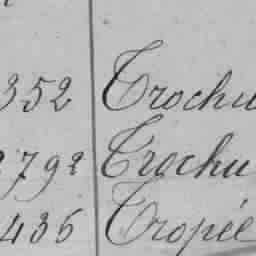 352 Trochu
2792 Trochu
435 Tropée